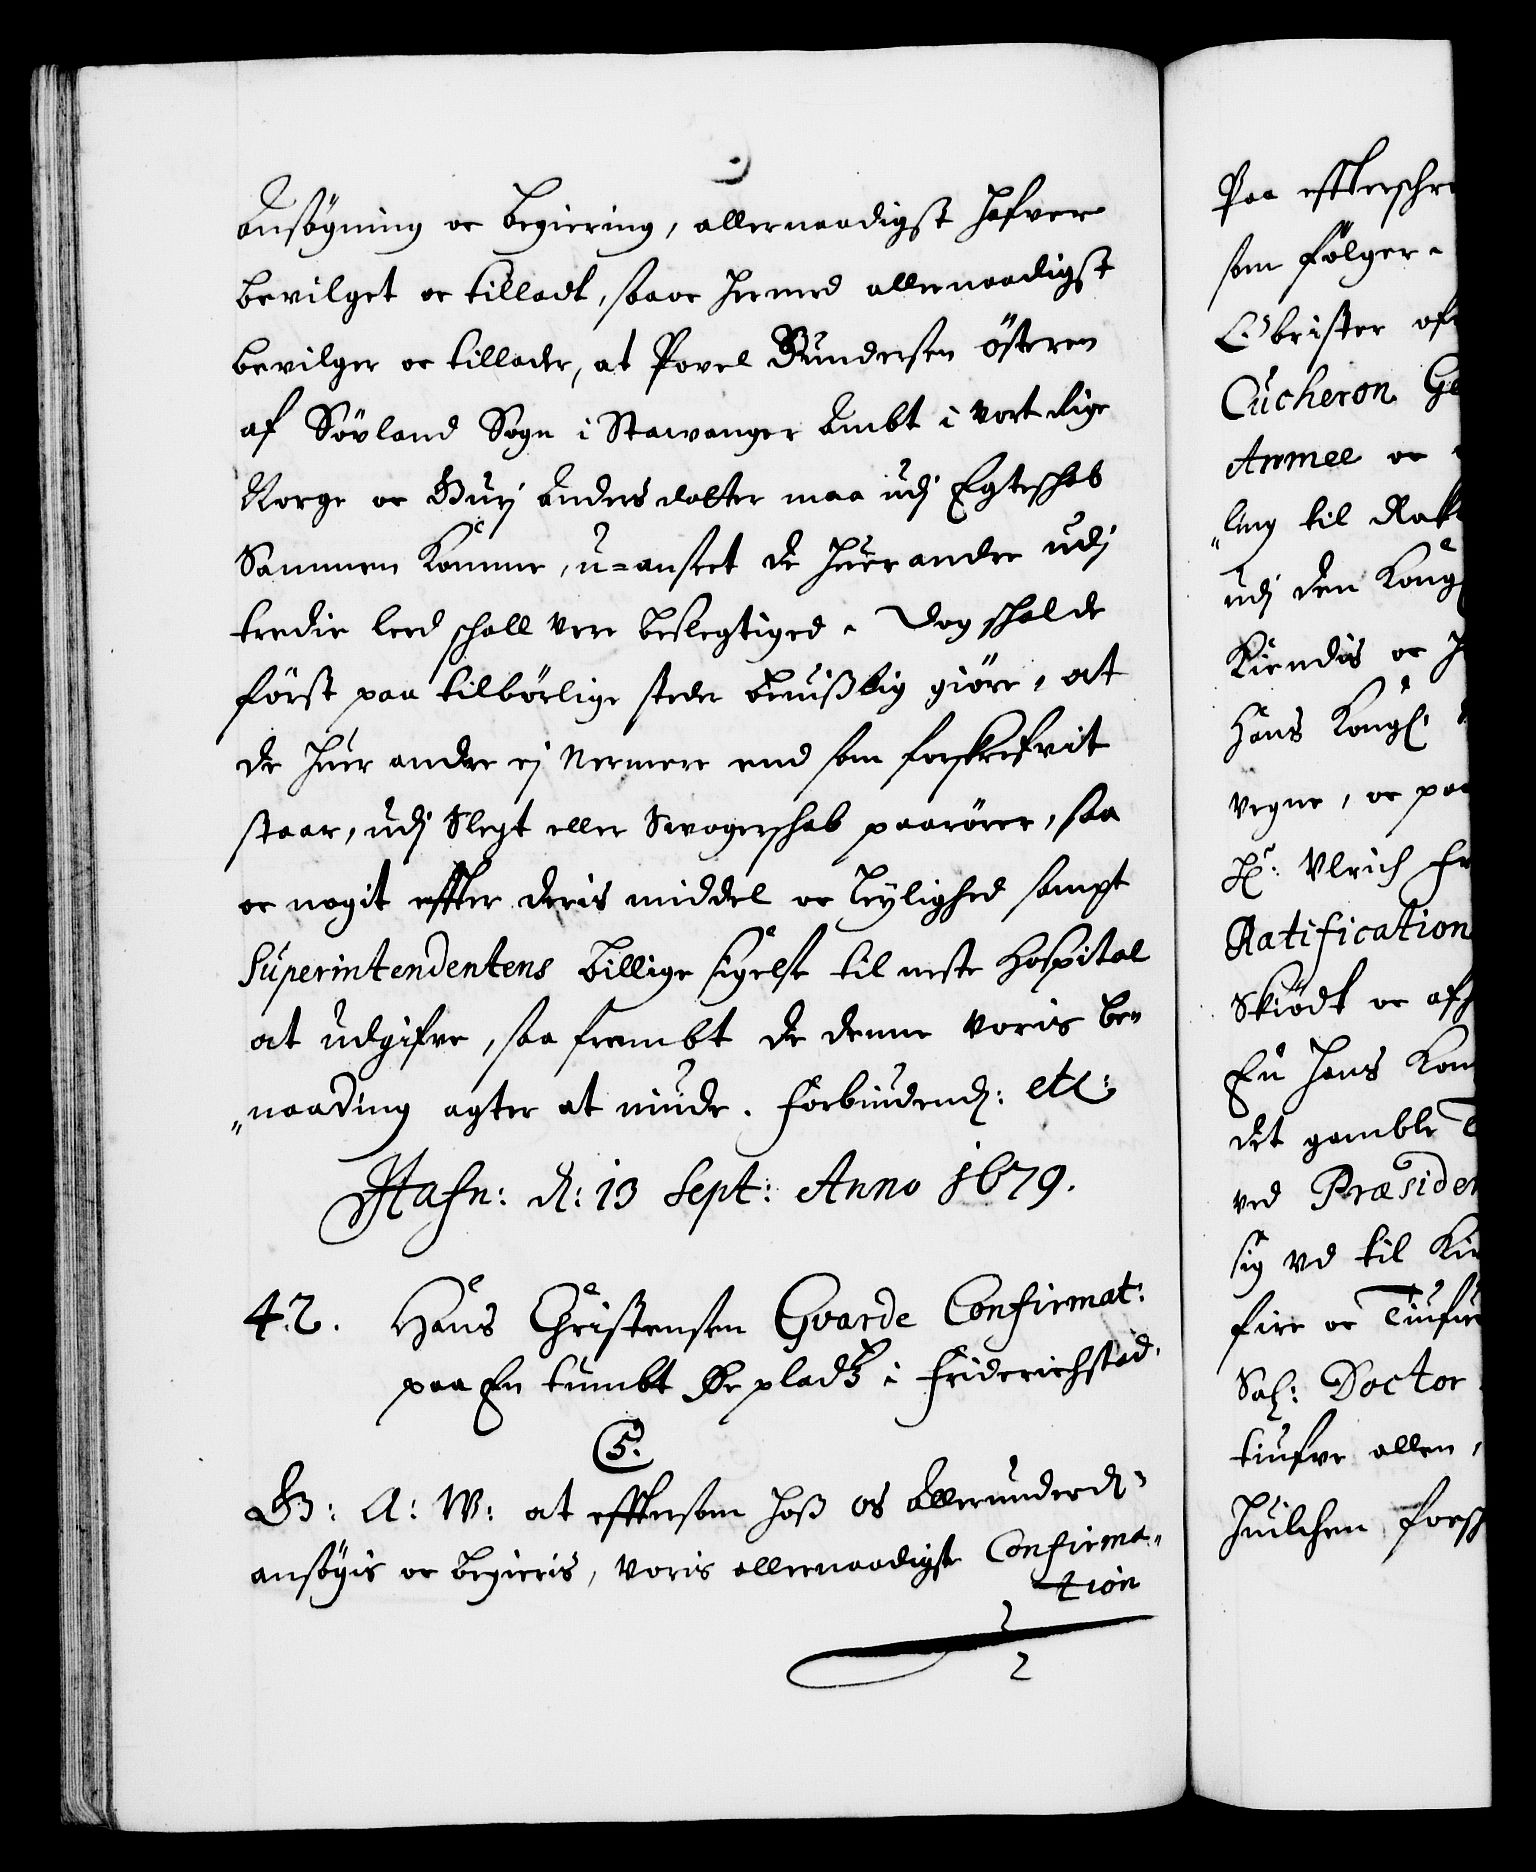 Ansögning oc begiering, allernaadigst hafver
bevilget oc tilladt, saa oc hermed allernaadigst
bevilger oc tillader, at Povel Gundersen österen
af Sövland Sogn i Stawanger Ambt i vort Rige
Norge oc Guri Anders dotter maa udj Egteschab
Sammen Komme, u=anseet de huer andre udj
tredie leed schall vere beslegtiged. Dog schal de
först paa tilbörlige steder bevißlig giöre, at
de huer andre ej nermere end som forskrefvit
staar, udj Slegt eller Svogerschab paarörer, saa
oc nogit effter deris middel oc leylighed sampt
Superintendentens billige sigelse til neste Hospital
at udgifve, saa frembt de denne voris be„
„naading agter at niude. Forbiudend: etc:
Hafn: d: 13 Sept: Anno 1679.
42. Hans Christensen Gvarde Confirmat:
paa En tumbt Öe pladtz i Friderichstad.
C5.
G: A: W: at efftersom hoß os Allerunderd:
ansögis oc begieris, voris allernaadigste Confirma„
tion
Paa effterschre
som fölger.
Obrister of
Cucheron Ge
Armee oc
„ling til Rak
udj den Kong
Kiendis oc h
Hans Kongl:
vegne, oc paa
H: Ulrich Fr
Ratification
Skiödt oc afh
En Hans Kon
det gamble T
ved Præsiden
sig ud til Kir
fire oc Tiufu
Sal: Doctor
tiufve allen,
huilchen forsch